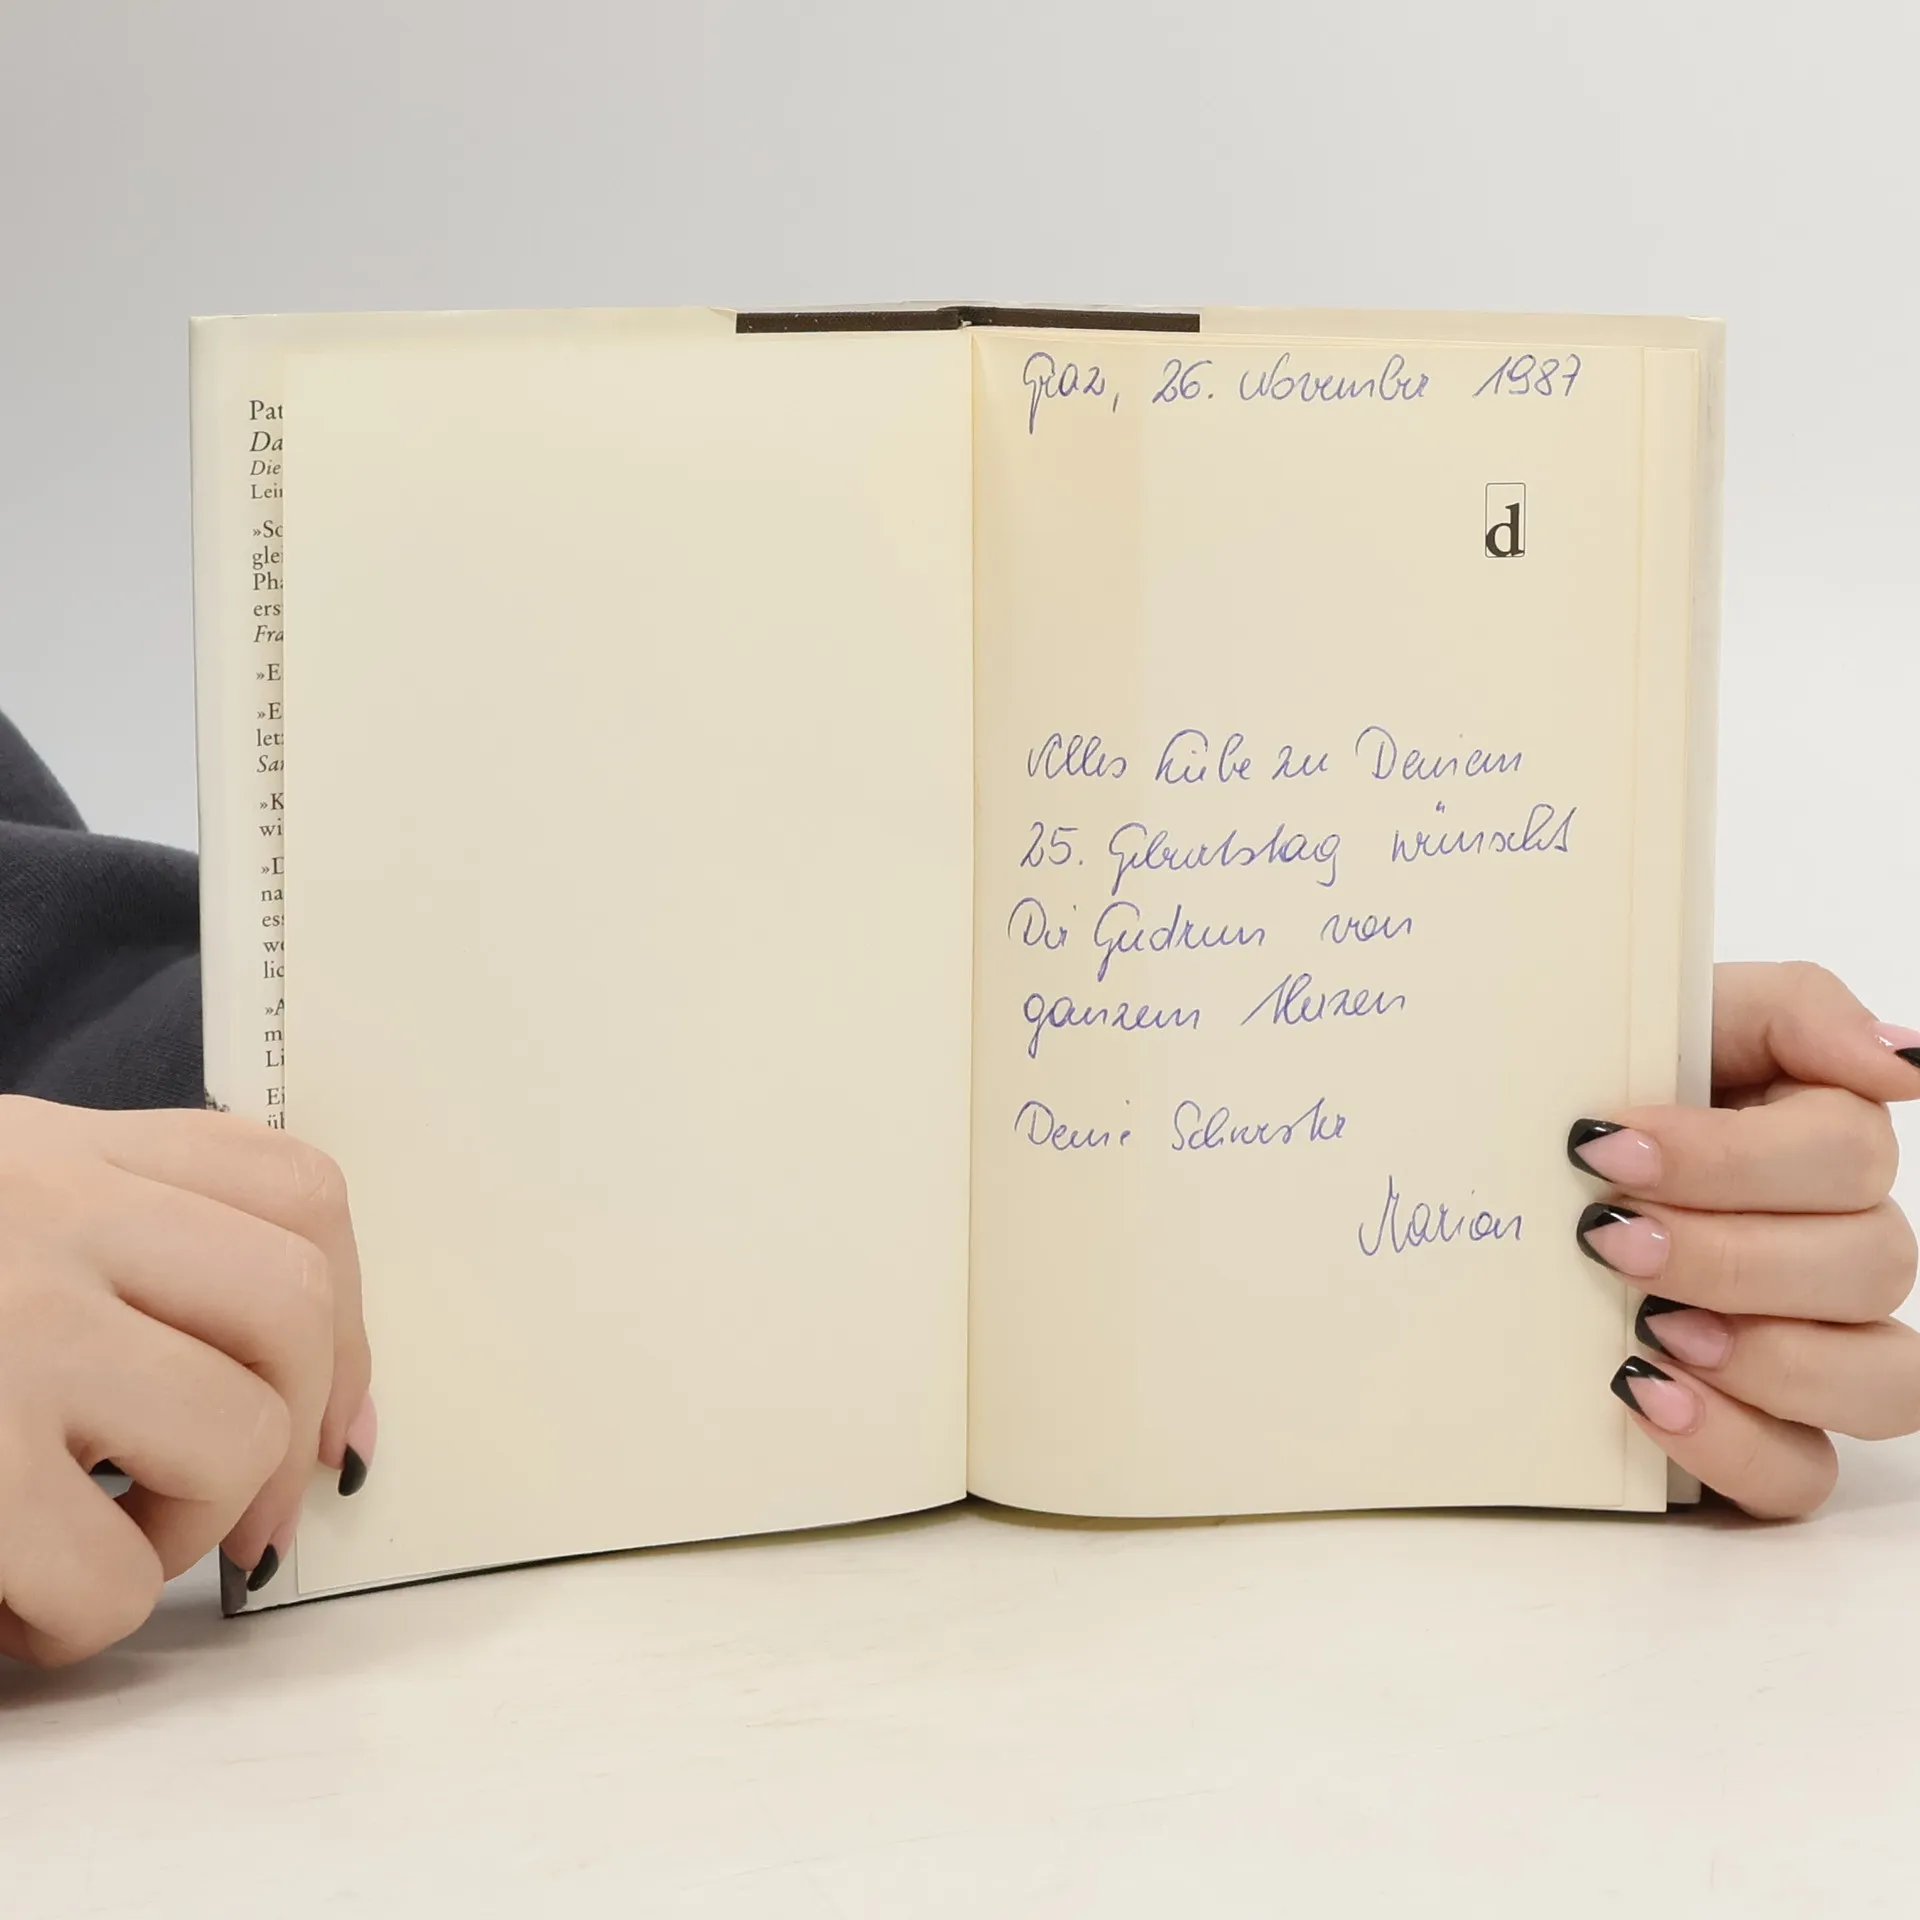 Pat
Da
Die
Lei
»Sc
glei
Pha
ers
Fra
»E
»E
letz
Sa
»K
wi
»D
na
ess
we
lic
»A
m
Li
Ei
üb
Graz, 26. November 1987
d
Alles Liebe zu Deinem
25. Geburtstag wünscht
Dir Gudrun von
ganzem Herzen
Deine Schwester
Marion